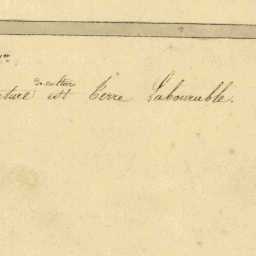 de culture
est terre Labourable.